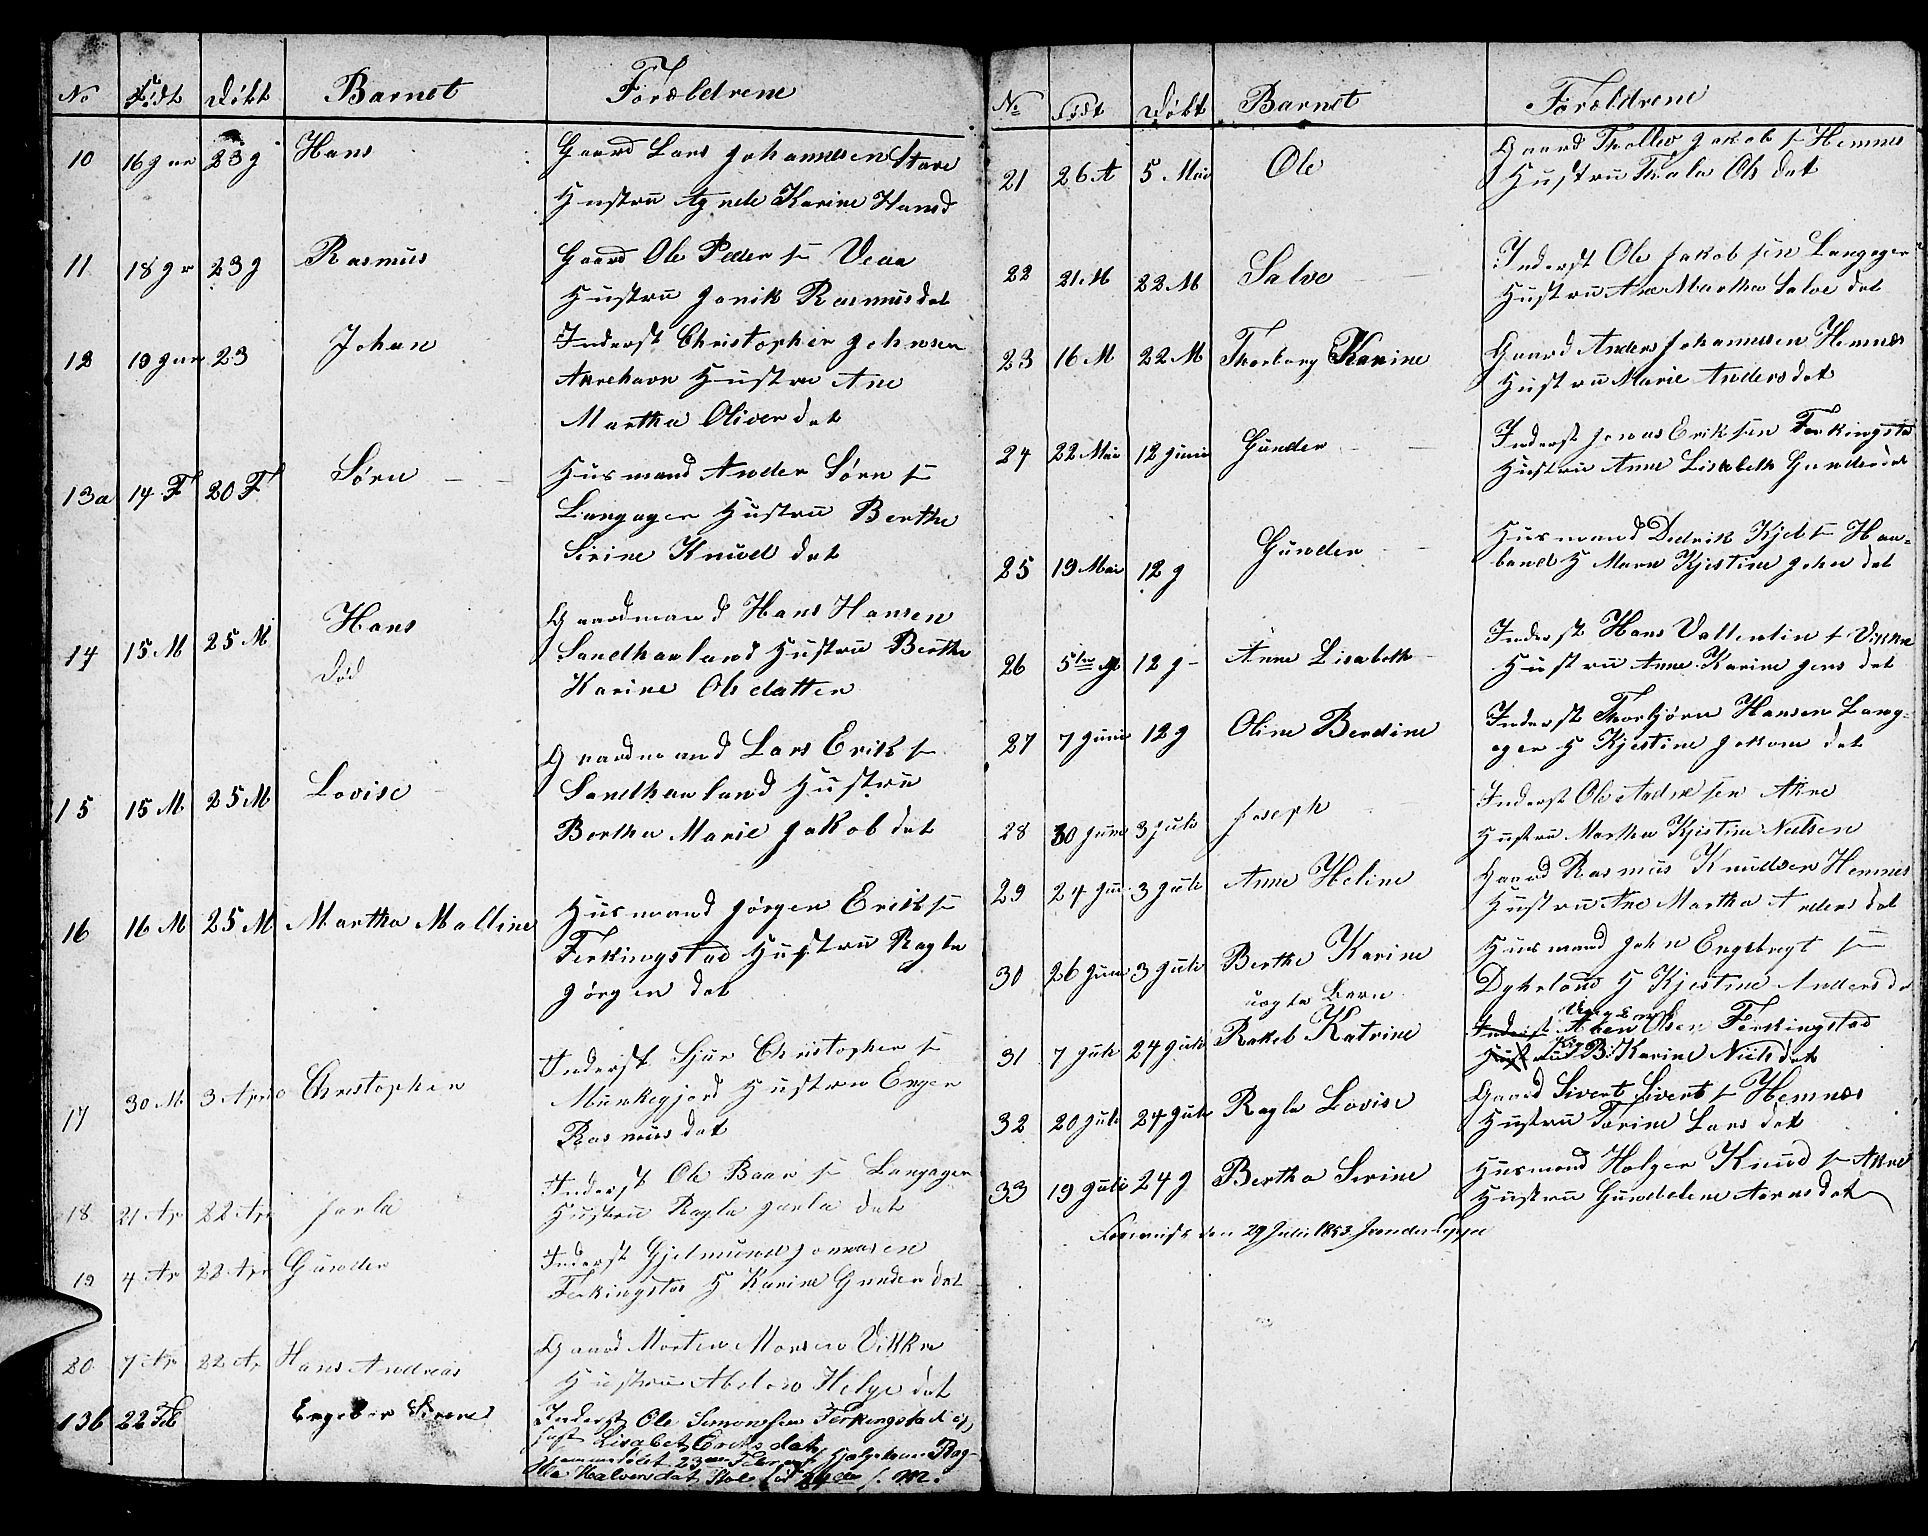 No Født Døbt Barnet Forældrene
10 16 Jan 23 J Hans Gaard Lars Johannesen Stave
Hustru Agnele Karine Hansd
11 18 Jr 23 J Rasmus Gaard Ole Peder s– Veaa
Hustru Janik Rasmusdat
12 19 Jan 23 Johan Inderst Christopher Johnsen
Aarehavn Hustru Ane
Martha Oliverdat
13a 14 F 20 F Sørn Husmand Ander Sørn s–
Langager Hustru Berthe
Sirine Knud dat
14 15 M 25 M Hans Gaardmand Hans Hansen
Død Sandhauland Hustru Berthe
Karine Olsdatter
15 15 M 25 M Lovise Gaardmand Lars Erik s–
Sandhauland Hustru
Bertha Marie Jakob dat
16 16 M 25 M Martha Malline Husmand Jørgen Erik s–
Ferkingstad Hustru Ragla
Jørgen dat
17 30 M 3 April Christopher Inderst Sjur Christopher s–
Munkegjord Hustru Enger
Rasmusdat
18 21 Ap 22 Apr Jarla Inderst Ole Baar s– Langager
Hustru Ragla Jarla dat
19 4 Ap 22 Apr Gunder Inderst Gjelmund Jonnasen
Ferkingstad H Karine Gunder dat
20 7 Ap 22 Ap Hans Andreas Gaard Morten Monsen Vikkre
Hustru Abelow Helge dat
13b 22 Feb Engeber Serene Inderst Ole Simonsen Ferkingstad og
Lisabet Eriksdat,
23 Februar Hjelpekone Rag-
la Halversdat Stole 24de s. M.
No Født Døbt Barnet Forældrene
21 26 A 5 Mai Ole Gaard Thollev Jakob s– Hemnes
Hustru Thala Ols dat
22 21 M 22 M Salve Inderst Ole Jakobsen Langager
Hustru Ane Martha Salve dat
23 16 M 22 M Thorborg Karine Gaard Anders Johannesen Hemnes
Hustru Marie Andersdat
24 22 Mai 12 Juni Gunder Inderst Jonas Eriksen Ferkingstad
Hustru Anne Lisabeth Gunderdat
25 19 Mai 12 J Gunder Husmand Dedrik Kjel s– Hau-
land H Maren Kjestine John dat
26 5te J 12 J Anne Lisabeth Inderst Hans Vallentin s– Vikkre
Hustru Anne Karine Jens dat
27 7 Juni 12 J Oline Berdine Inderst Thorbjørn Hansen Lang-
ager H Kjestine Jakom dat
28 30 Juni 3 Juli Joseph Inderst Ole Andre sen Akre
Hustru Martha Kjestine Nielsen
29 24 Jun 3 Juli Anne Heline Gaard Rasmus Knudsen Hemnes
Hustru Ane Martha Anders dat
30 26 Juni 3 Juli Berthe Karine Husmand John Engebregt s–
Dykeland H Kjestine Anders d
uægte Barn
31 7 Juli 24 Juli Rakeb Katrine Inderst Aben Olsen Ferkingstad
Hustru Pige B: Karine Nielsdat
32 20 Juli 24 Juli Ragla Lovise Gaard Sivert Sivert s– Hemnes
Hustru Torine Lars dat
33 19 Juli 24 J Bertha Serine Husmand Holger Knud s– Akre
Hustru Gundelene Aarnsdat
Foreviist den 29 Juli 1853